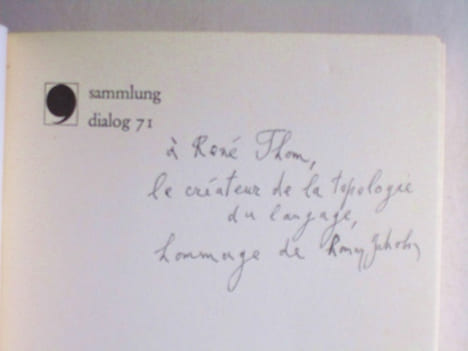 sammlung
dialog 71
à René Thom,
le créateur de la topologie
du langage,
hommage de Roman Jakobson